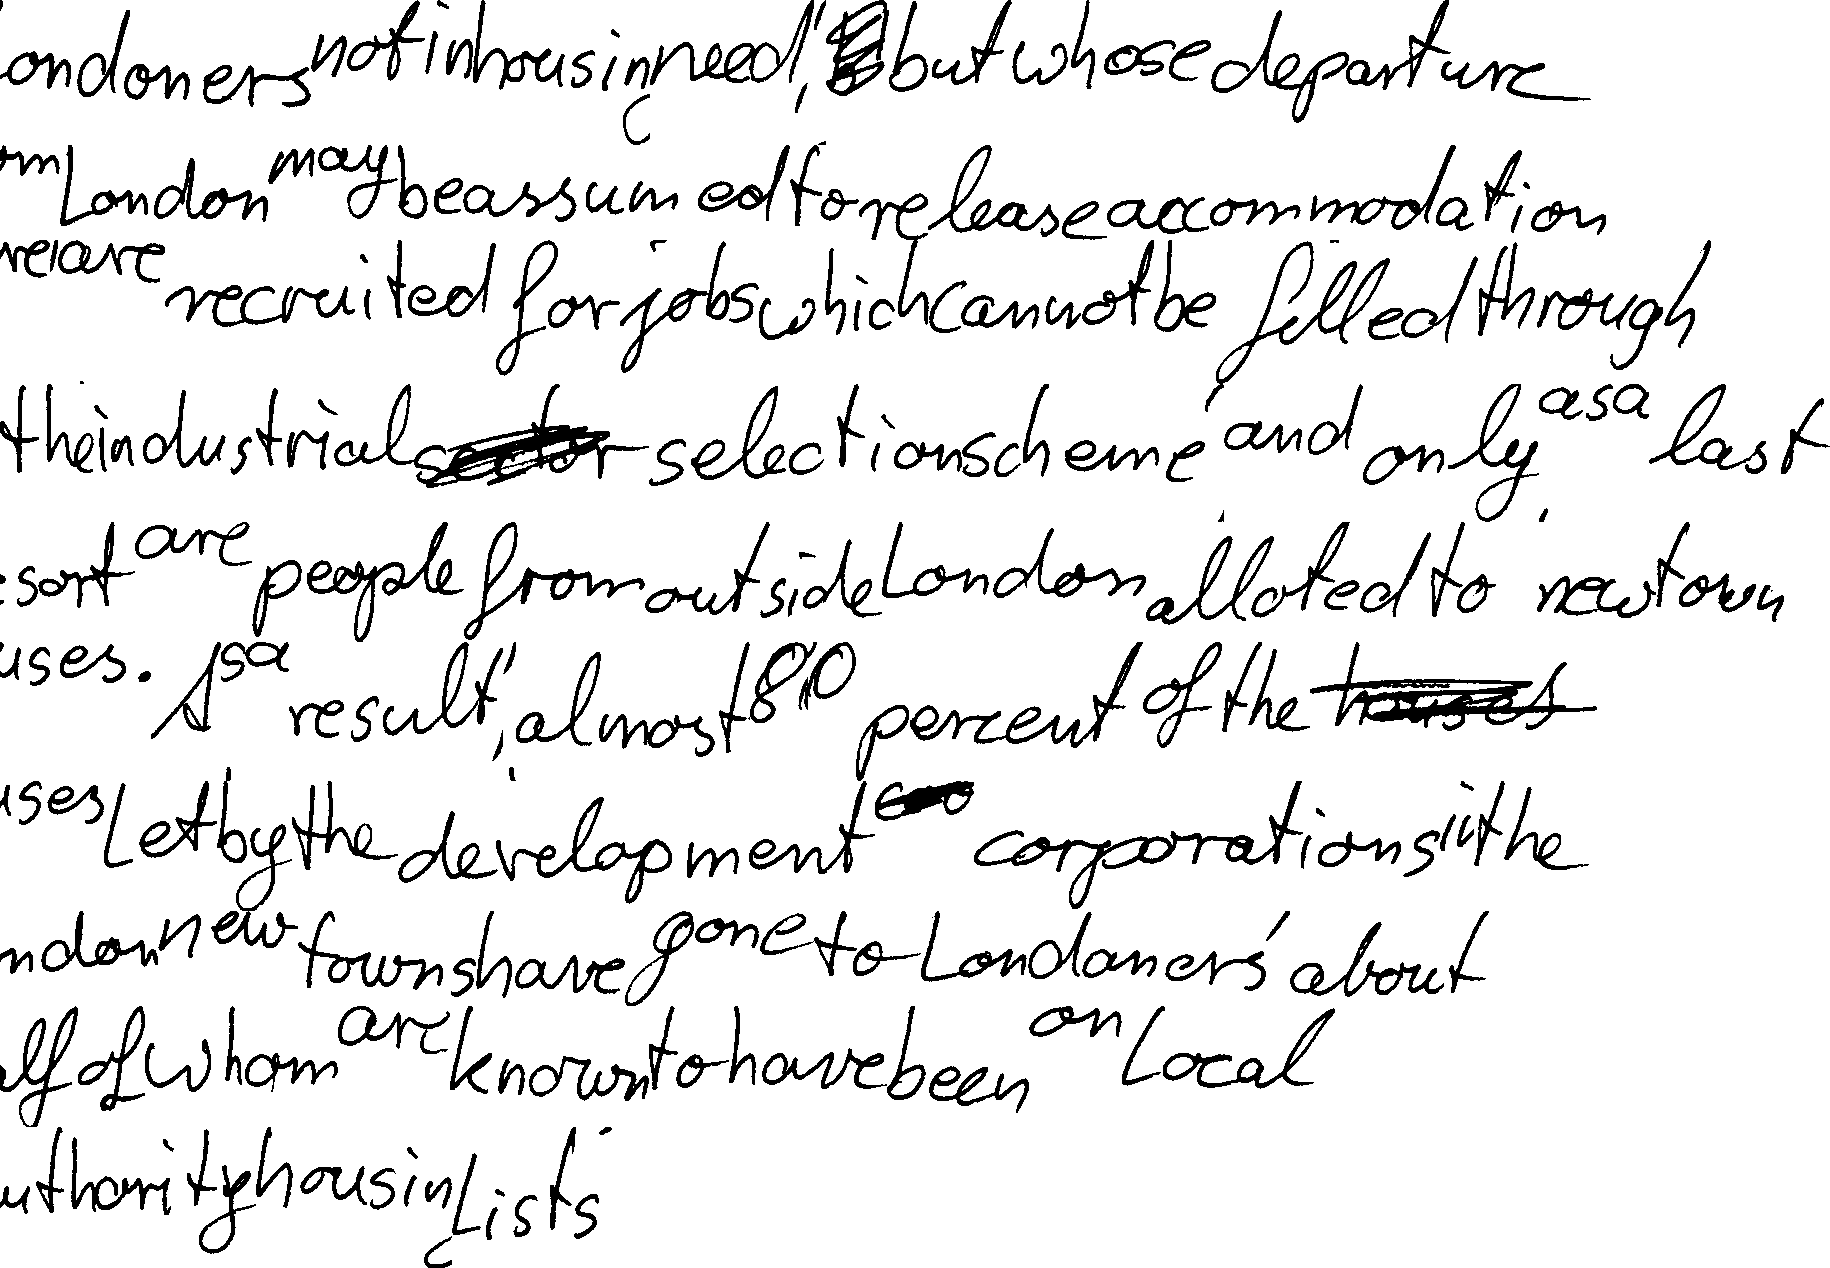 ondoners not in housing need, but whose departure
om London may be assumed to release accommodation
are recruited for jobs which cannot be filled through
the industrial sector selection scheme and only as a last
esort are people from outside London alloted to new town
uses. As a result, almost 80 percent of the houses
uses Let by the development corporations in the
ndon new towns have gone to Londoners about
alf of whom are known to have been on Local
uthority housing Lists